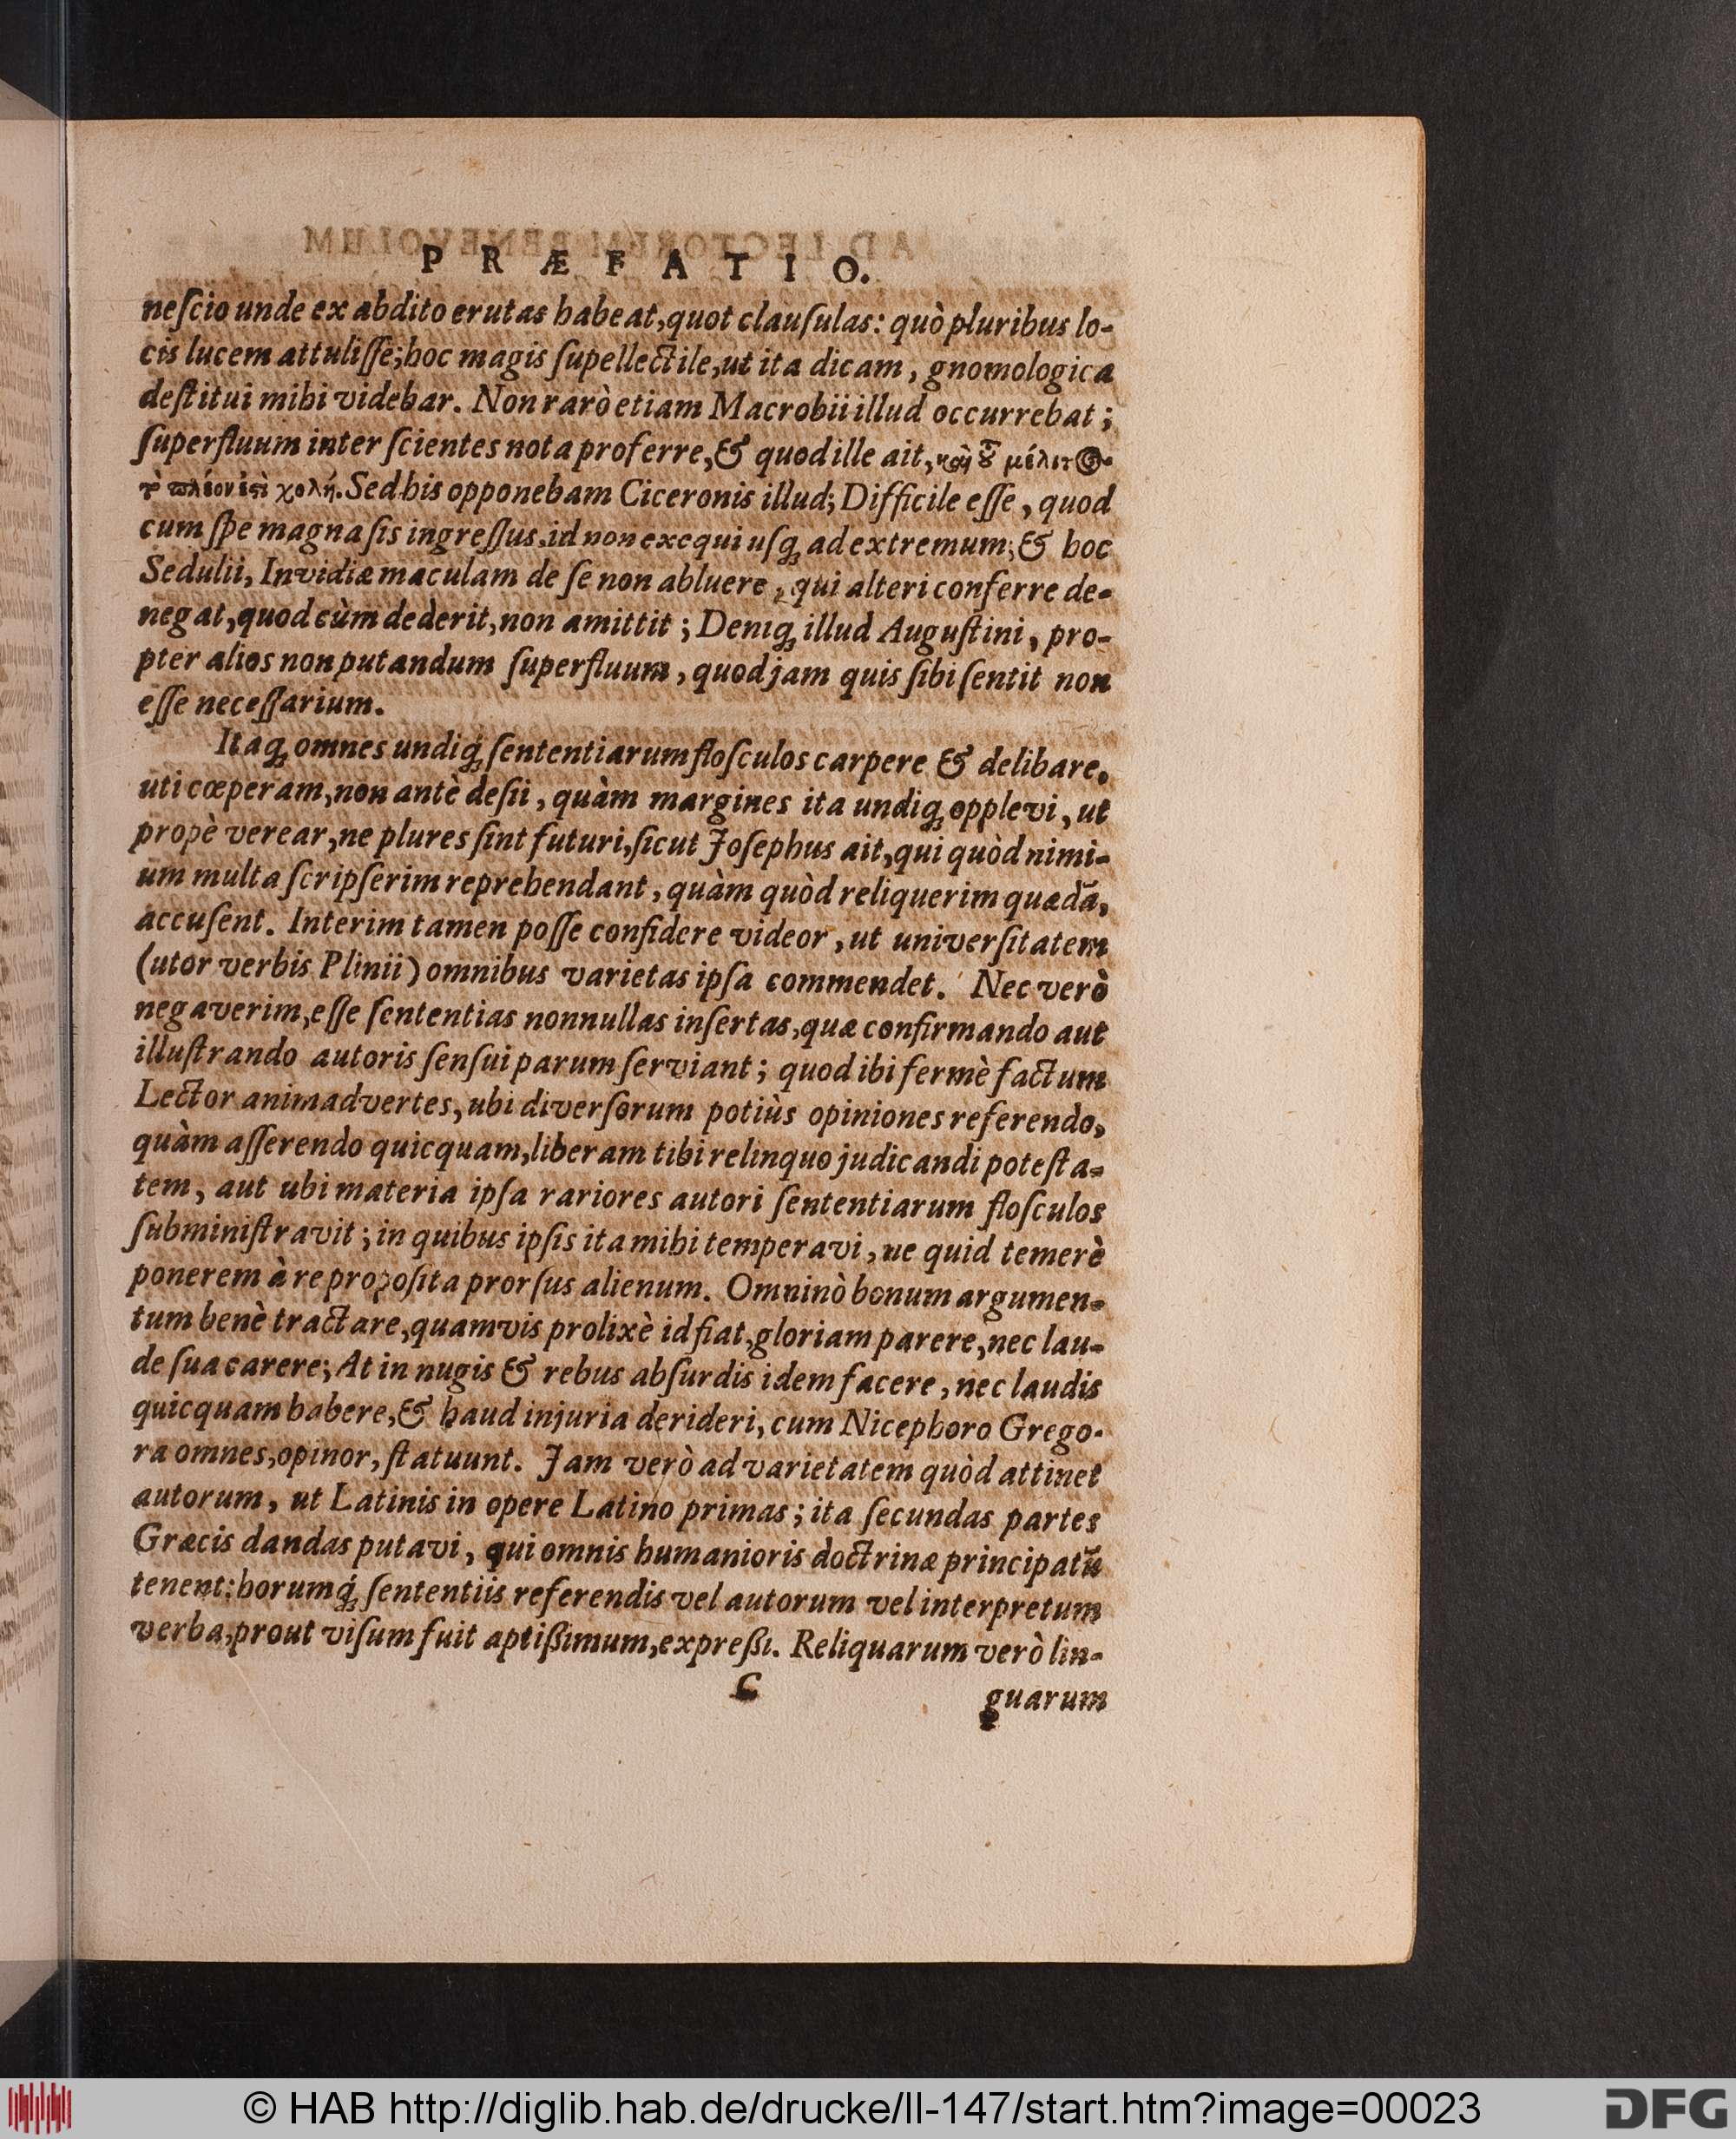 PRÆFATIO.
neſcio unde ex abdito erutas habeat, quot clauſulas: quò pluribus lo-
cis lucem attuliſſe; hoc magis ſupellectile, ut ita dicam, gnomologica
deſtitui mihi videbar. Non rarò etiam Macrobii illud occurrebat;
ſuperfluum inter ſcientes nota proferre, & quod ille ait, καὶ τȣ͂ μέλιτος
τὸ πλέον ἐςὶ χολή. Sed his opponebam Ciceronis illud; Difficile eſſe, quod
cum ſpe magna ſis ingreſſus, id non exequi uſq; ad extremum; & hoc
Sedulii, Invidiæ maculam de ſe non abluere, qui alteri conferre de-
negat, quod cùm dederit, non amittit; Deniq; illud Auguſtini, pro-
pter alios non putandum ſuperfluum, quod jam quis ſibi ſentit non
eſſe neceſſarium.
Itaq; omnes undiq; ſententiarum floſculos carpere & delibare,
uti cœperam, non antè deſii, quàm margines ita undiq; opplevi, ut
propè verear, ne plures ſint futuri, ſicut Joſephus ait, qui quòd nimi-
um multa ſcripſerim reprehendant, quàm quòd reliquerim quædã,
accuſent. Interim tamen poſſe confidere videor, ut univerſitatem
(utor verbis Plinii) omnibus varietas ipſa commendet. Nec verò
negaverim, eſſe ſententias nonnullas inſertas, quæ confirmando aut
illuſtrando autoris ſenſui parum ſerviant; quod ibi fermè factum
Lector animadvertes, ubi diverſorum potiùs opiniones referendo,
quàm aſſerendo quicquam, liberam tibi relinquo judicandi poteſta-
tem, aut ubi materia ipſa rariores autori ſententiarum floſculos
ſubminiſtravit; in quibus ipſis ita mihi temperavi, ne quid temerè
ponerem à re propoſita prorſus alienum. Omninò bonum argumen-
tum benè tractare, quamvis prolixè id fiat, gloriam parere, nec lau-
de ſua carere; At in nugis & rebus abſurdis idem facere, nec laudis
quicquam habere, & haud injuria derideri, cum Nicephoro Grego-
ra omnes, opinor, ſtatuunt. Jam verò ad varietatem quòd attinet
autorum, ut Latinis in opere Latino primas; ita ſecundas partes
Græcis dandas putavi, qui omnis humanioris doctrinæ principatũ
tenent: horumq́; ſententiis referendis vel autorum vel interpretum
verba, prout viſum fuit aptißimum, expreßi. Reliquarum verò lin-
c guarum
© HAB http://diglib.hab.de/drucke/ll-147/start.htm?image=00023
DFG